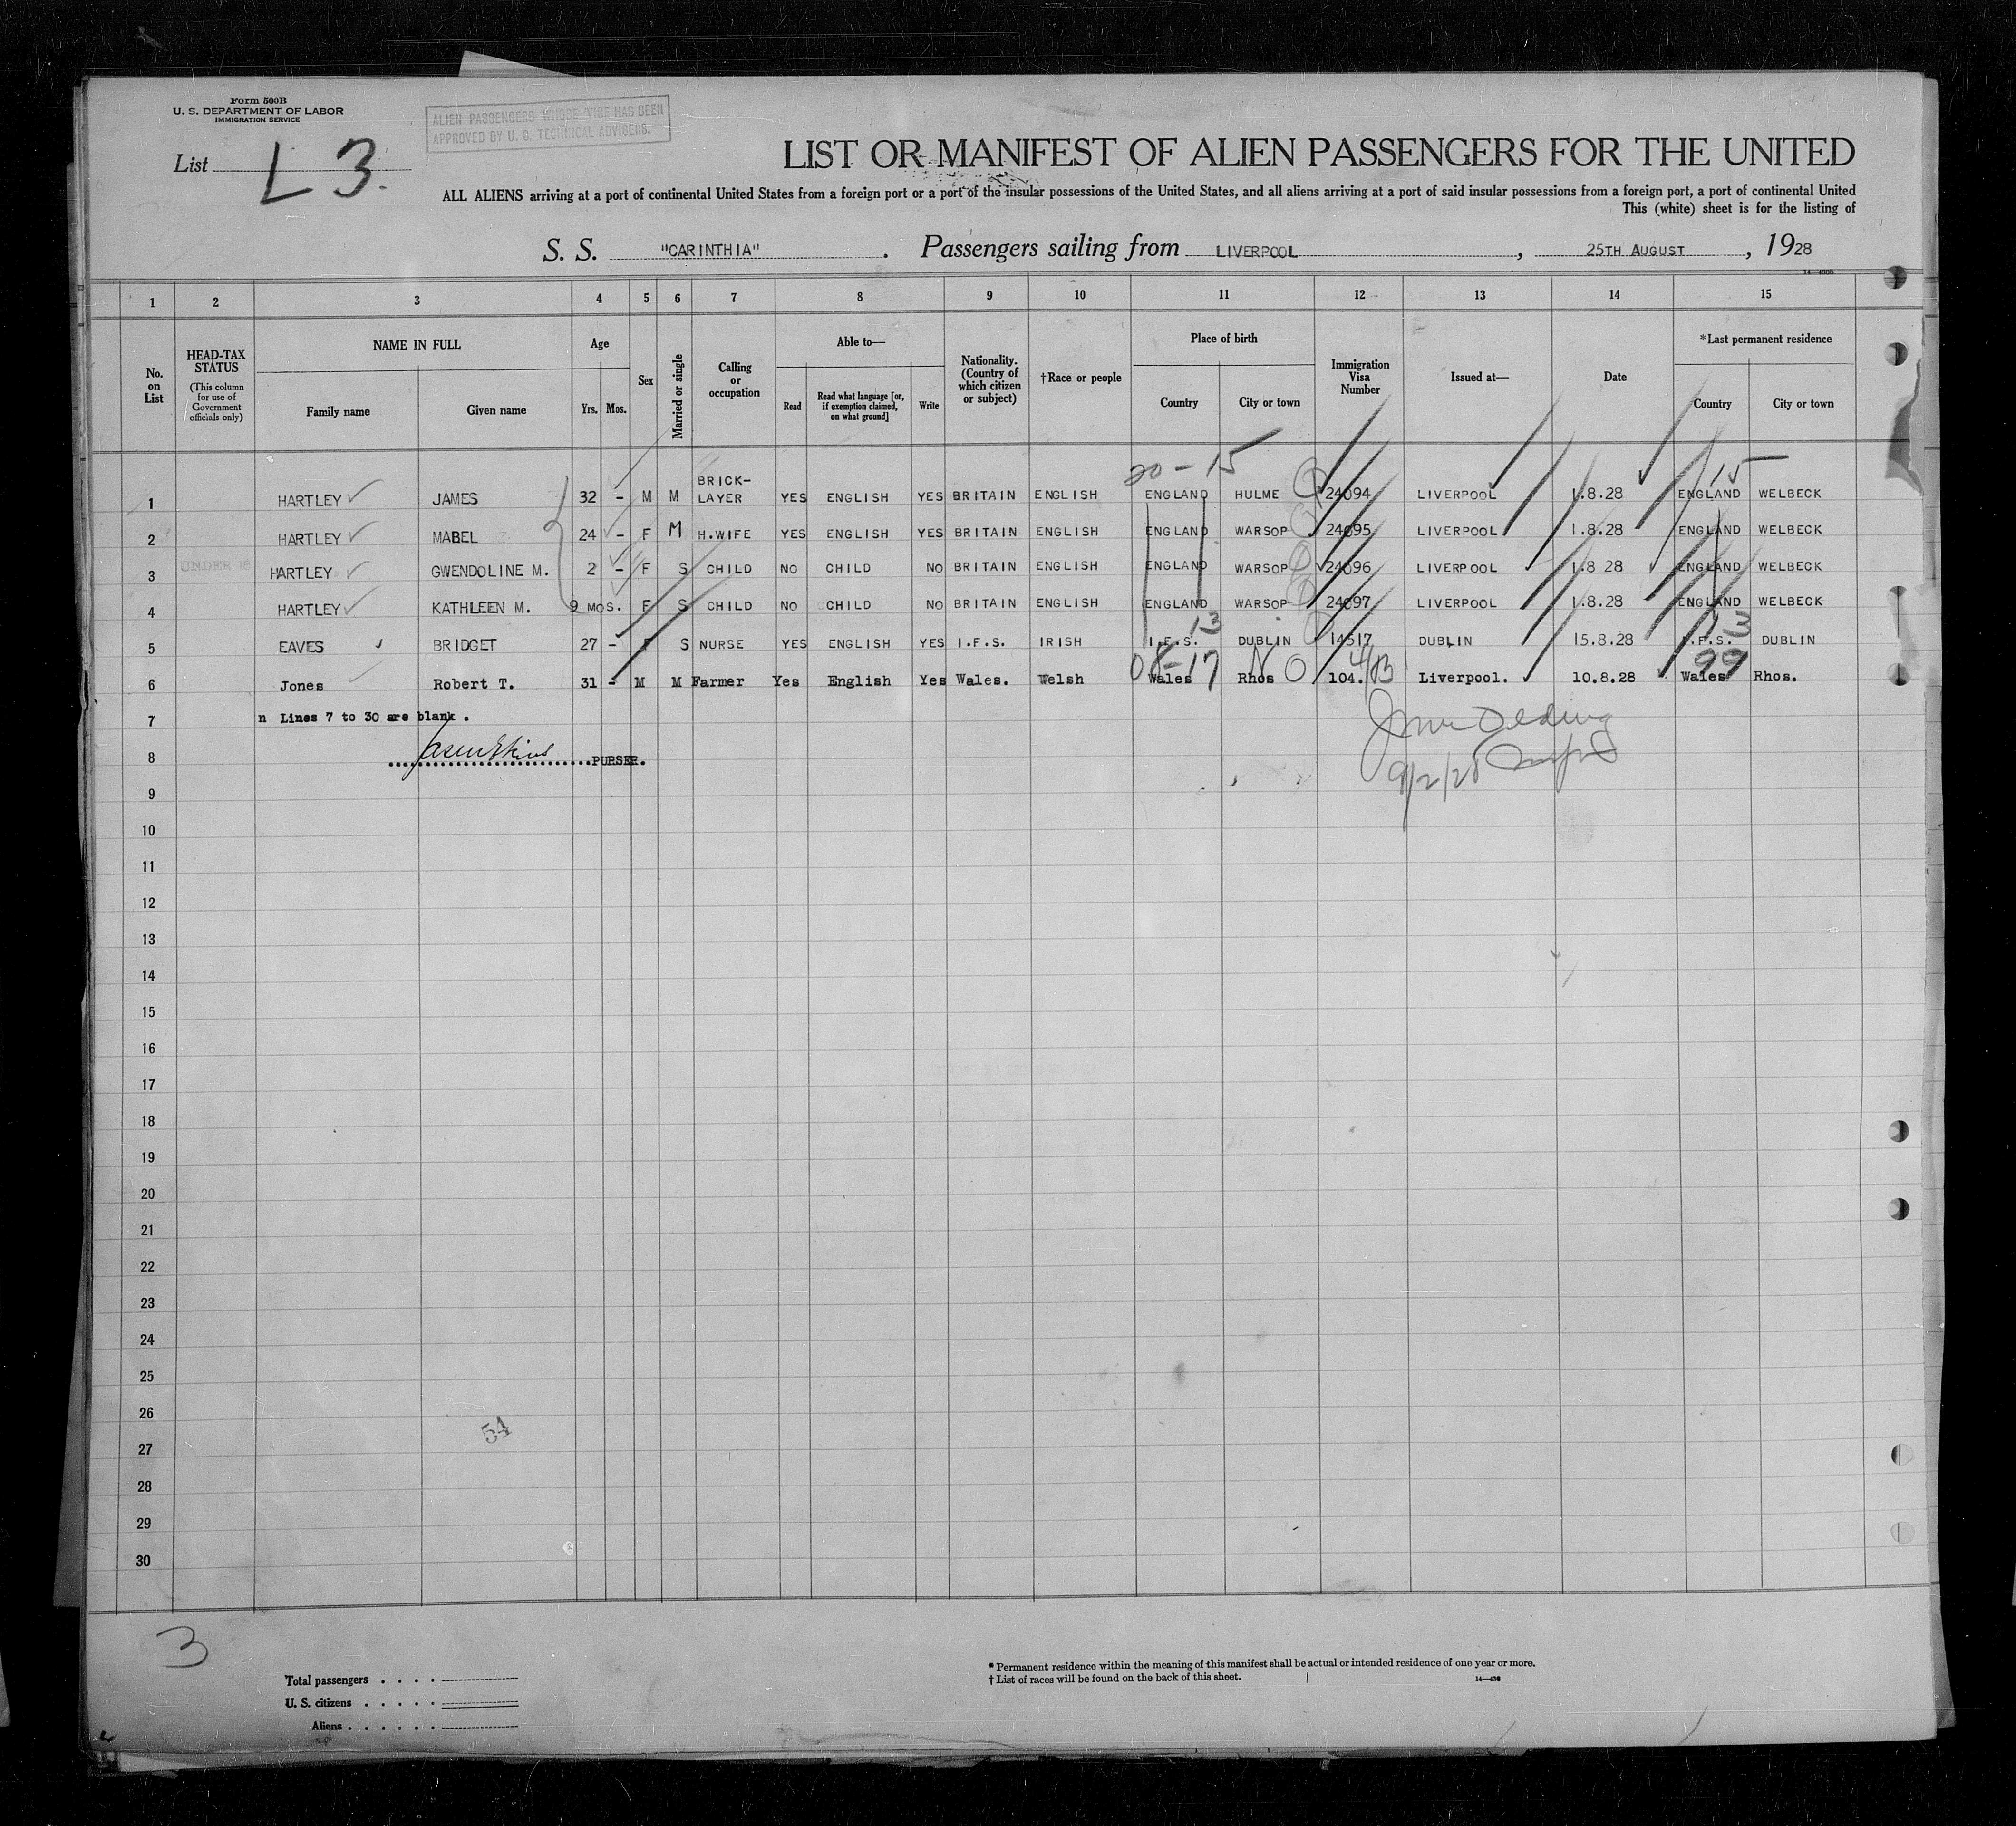 Form 500B
U. S. DEPARTMENT OF LABOR
IMMIGRATION SERVICE
ALIEN PASSENGERS WHOSE VISE HAS BEEN
APPROVED BY U. S. TECHNICAL ADVISERS.
List L 3.
LIST OR MANIFEST OF ALIEN PASSENGERS FOR THE UNITED
ALL ALIENS arriving at a port of continental United States from a foreign port or a port of the insular possessions of the United States, and all aliens arriving at a port of said insular possessions from a foreign port, a port of continental United
This (white) sheet is for the listing of
S. S. "CARINTHIA". Passengers sailing from LIVERPOOL, 25TH AUGUST, 1928
14-430b
1 2 3 4 5 6 7 8 9 10 11 12 13 14 15
No. on List
HEAD-TAX STATUS
(This column for use of Government officials only)
NAME IN FULL
Family name Given name
Age
Yrs. Mos.
Sex
Married or single
Calling or occupation
Able to—
Read
Read what language [or, if exemption claimed, on what ground]
Write
Nationality. (Country of which citizen or subject)
†Race or people
Place of birth
Country City or town
Immigration Visa Number
Issued at—
Date
*Last permanent residence
Country City or town
20-15 15
1 HARTLEY JAMES 32 - M M BRICK-LAYER YES ENGLISH YES BRITAIN ENGLISH ENGLAND HULME 24094 LIVERPOOL 1.8.28 ENGLAND WELBECK
2 HARTLEY MABEL 24 - F M H.WIFE YES ENGLISH YES BRITAIN ENGLISH ENGLAND WARSOP 24095 LIVERPOOL 1.8.28 ENGLAND WELBECK
UNDER 16
3 HARTLEY GWENDOLINE M. 2 - F S CHILD NO CHILD NO BRITAIN ENGLISH ENGLAND WARSOP 24096 LIVERPOOL 1.8 28 ENGLAND WELBECK
4 HARTLEY KATHLEEN M. 9 MOS. F S CHILD NO CHILD NO BRITAIN ENGLISH ENGLAND WARSOP 24097 LIVERPOOL 1.8.28 ENGLAND WELBECK
13 13
5 EAVES BRIDGET 27 - F S NURSE YES ENGLISH YES I.F.S. IRISH I.F.S. DUBLIN 14517 DUBLIN 15.8.28 I.F.S. DUBLIN
NO 99
6 Jones Robert T. 31 - M M Farmer Yes English Yes Wales. Welsh Wales Rhos 104. Liverpool. 10.8.28 Wales Rhos.
7 n Lines 7 to 30 are blank.
8 PURSER.
9/2/28
9
10
11
12
13
14
15
16
17
18
19
20
21
22
23
24
25
26
54
27
28
29
30
3
Total passengers
U. S. citizens
Aliens
* Permanent residence within the meaning of this manifest shall be actual or intended residence of one year or more.
† List of races will be found on the back of this sheet.
14—430